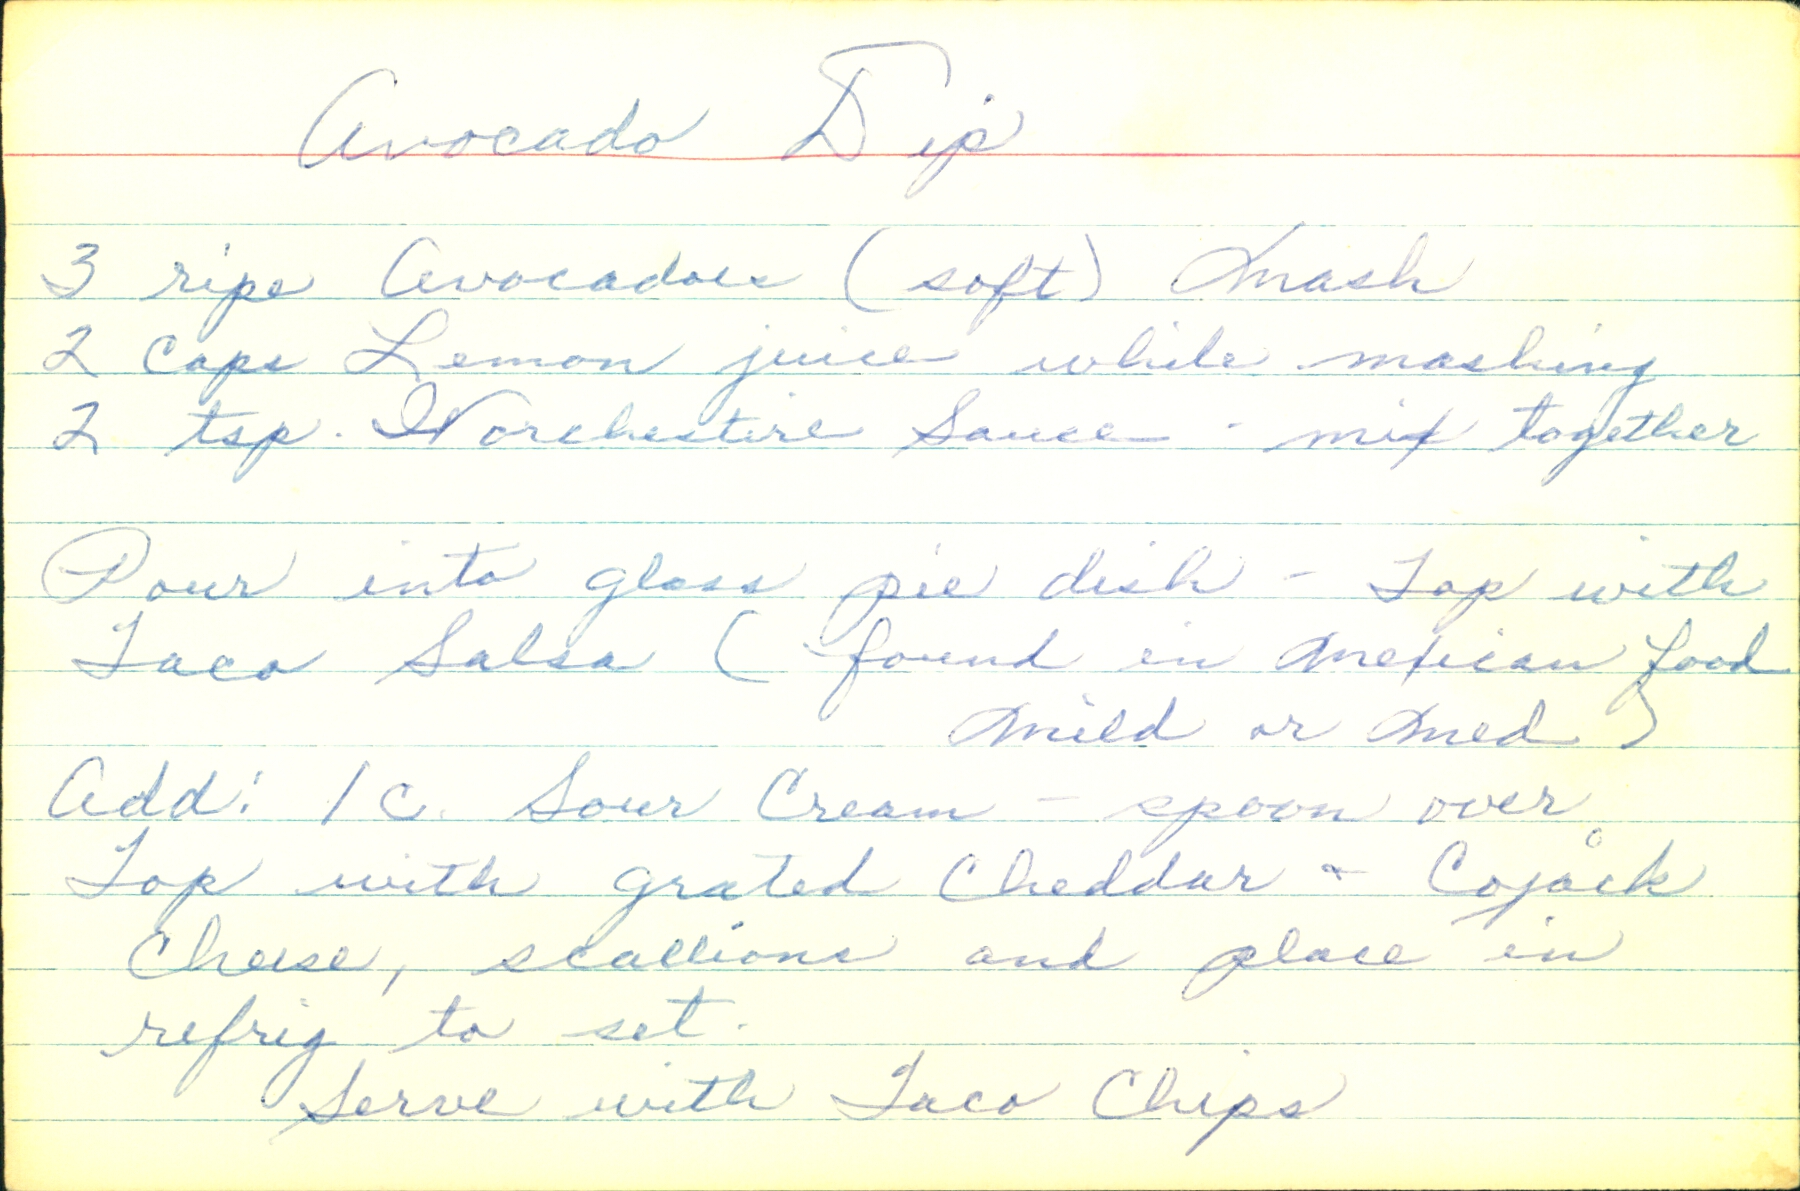 Avocado Dip
3 ripe Avocadoes (soft) Smash
2 caps Lemon juice while mashing
2 tsp. Worchestire Sauce - mix together
Pour into glass pie dish - Top with
Taco Salsa (found in Mexican food
Mild or Med)
Add: 1 c. Sour Cream - spoon over
Top with grated Cheddar & Cojack
Cheese, scallions and place in
refrig to set.
Serve with Taco Chips